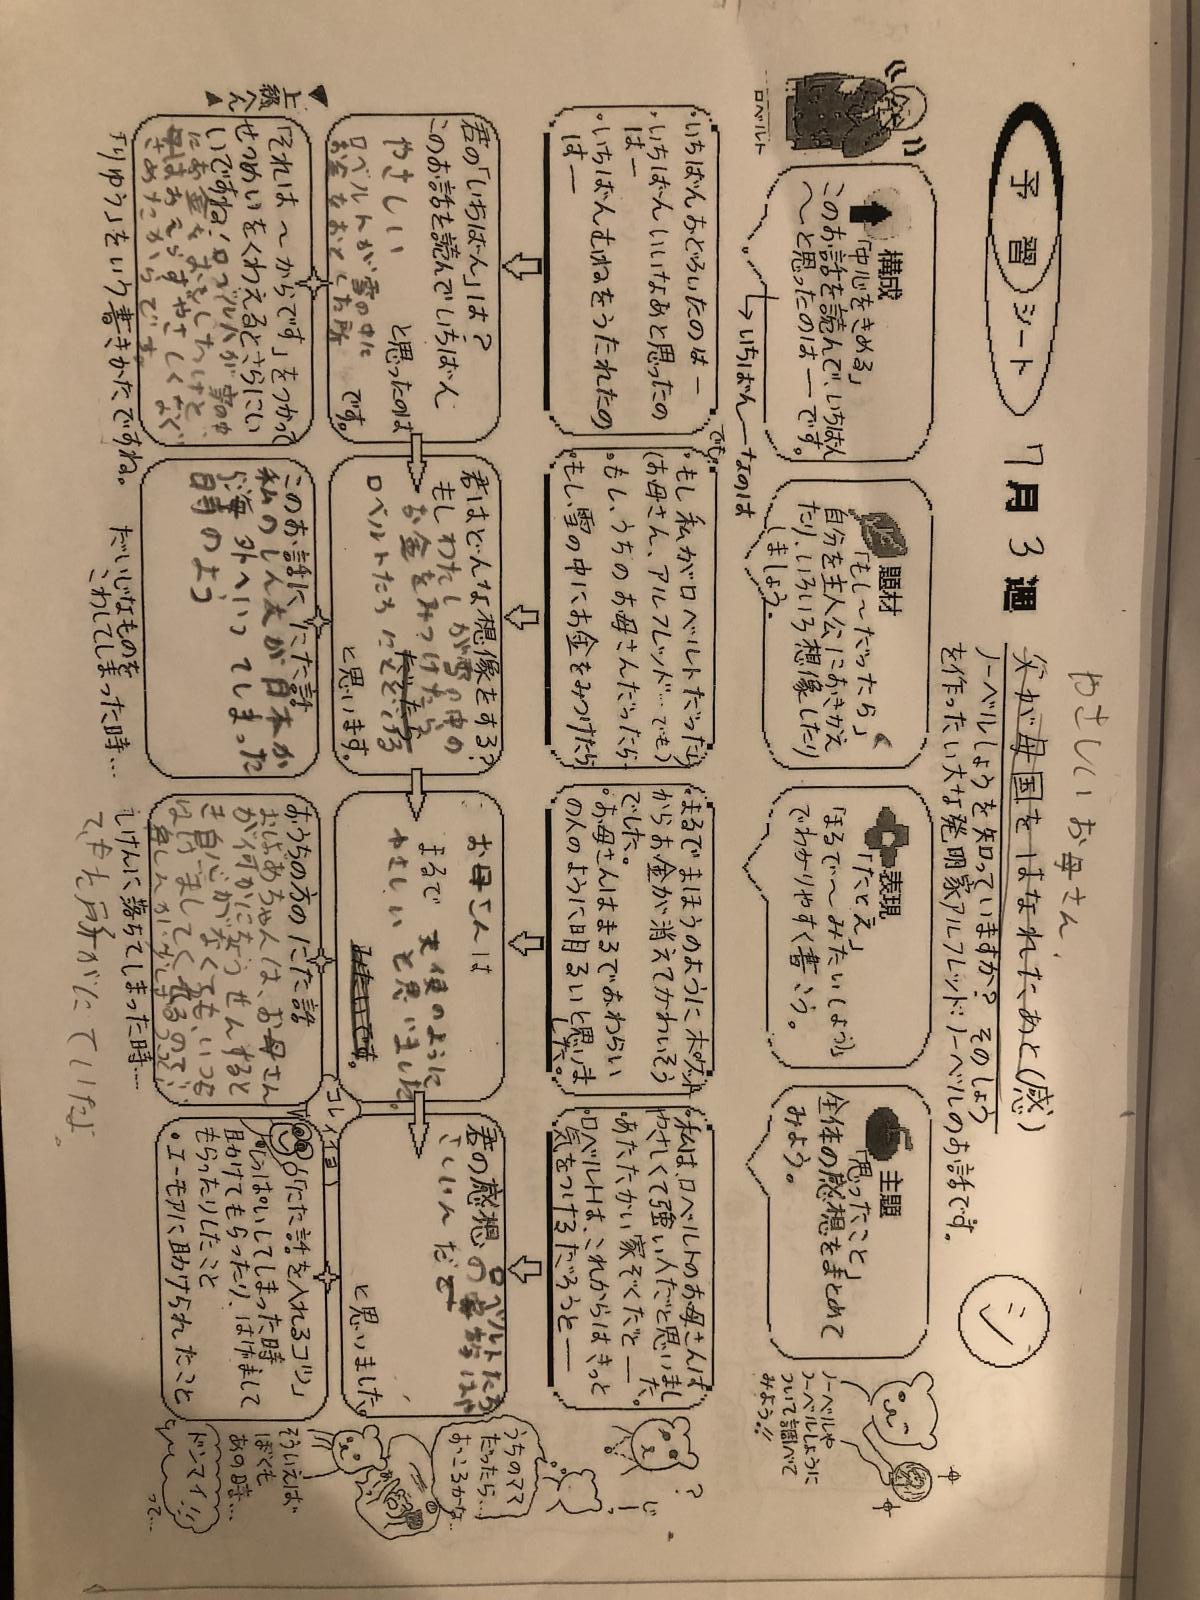 予習シート 7月3週
やさしいお母さん
父が母国をはなれたあと(感)
ノーベルしょうを知っていますか? そのしょう
を作ったい大な発明家アルフレッド・ノーベルのお話です。
シ
ロベルト
構成
「中心をきめる」
このお話を読んで、いちばん
〜と思ったのは―です。
いちばん―なのは
題材
「もし〜だったら」
自分を主人公におきかえ
たり、いろいろ想像したり
しましょう。
表現
「たとえ」
「まるで〜みたい(しょう)」
でわかりやすく書こう。
主題
「思ったこと」
全体の感想をまとめて
みよう。
ノーベルや
ノーベルしょうに
ついて調べて
みよう!!
・いちばんおどろいたのは―
・いちばんいいなあと思ったの
は―
・いちばんむねをうたれたの
は―
でも。
・もし私がロベルトだったら
(お母さん、アルフレッド…でも)
・もし、うちのお母さんだったら
・もし、雪の中にお金をみつけたら
・まるでまほうのように木の
からお金が消えてかわいそう
でした。
・お母さんはまるでおわらい
の人のように明るいと思いま
した。
・私は、ロベルトのお母さんは
やさしくて強い人だと思いまし
た。
・あたたかい家ぞくだと―
・ロベルトは、これからはきっと
気をつけるだろうと―
?
じー
君の「いちばん」は?
このお話を読んでいちばん
やさしい と思ったのは
ロベルトが雪の中に
お金をおとした所 です。
君はどんな想像をする?
もしわたしが雪の中の
お金をみつけたら
ロベルトたちにとどける
と思います。
お母さんは
まるで 天使のように
やさしいと思いました。
みたいです。
君の感想 ロベルトたち
の家族は
さいしんだ
と思いました。
うちのママ
だったら…
おこるかな…
▼上級へん▲
「それは〜からです」をつかって
せつめいをくわえるとさらにい
いですね! ロベルトが雪の中
にお金をおとしたけど、
母はおこらずやさしくなぐ
さめたからです。
「りゆう」をいう書きかたですね。
このお話ににた話
私のしん友が日本か
ら海外へいってしまった
時のよう
だいじなものを
こわしてしまった時…
おうちの方のにた話
おじいちゃんは、お母さん
が何かにちょうせんすると
き自信がなくても、いつも
はげましてくれるので、
しけんに落ちてしまった時…
でもた所がにていたよ。
コレイ
「にた話を入れるコツ」
・しっぱいしてしまった時
助けてもらったり、はげまして
もらったりしたこと
・ユーモアに助けられたこと
そういえば
ぼくも
あの時…
ドンマイ!!
って…